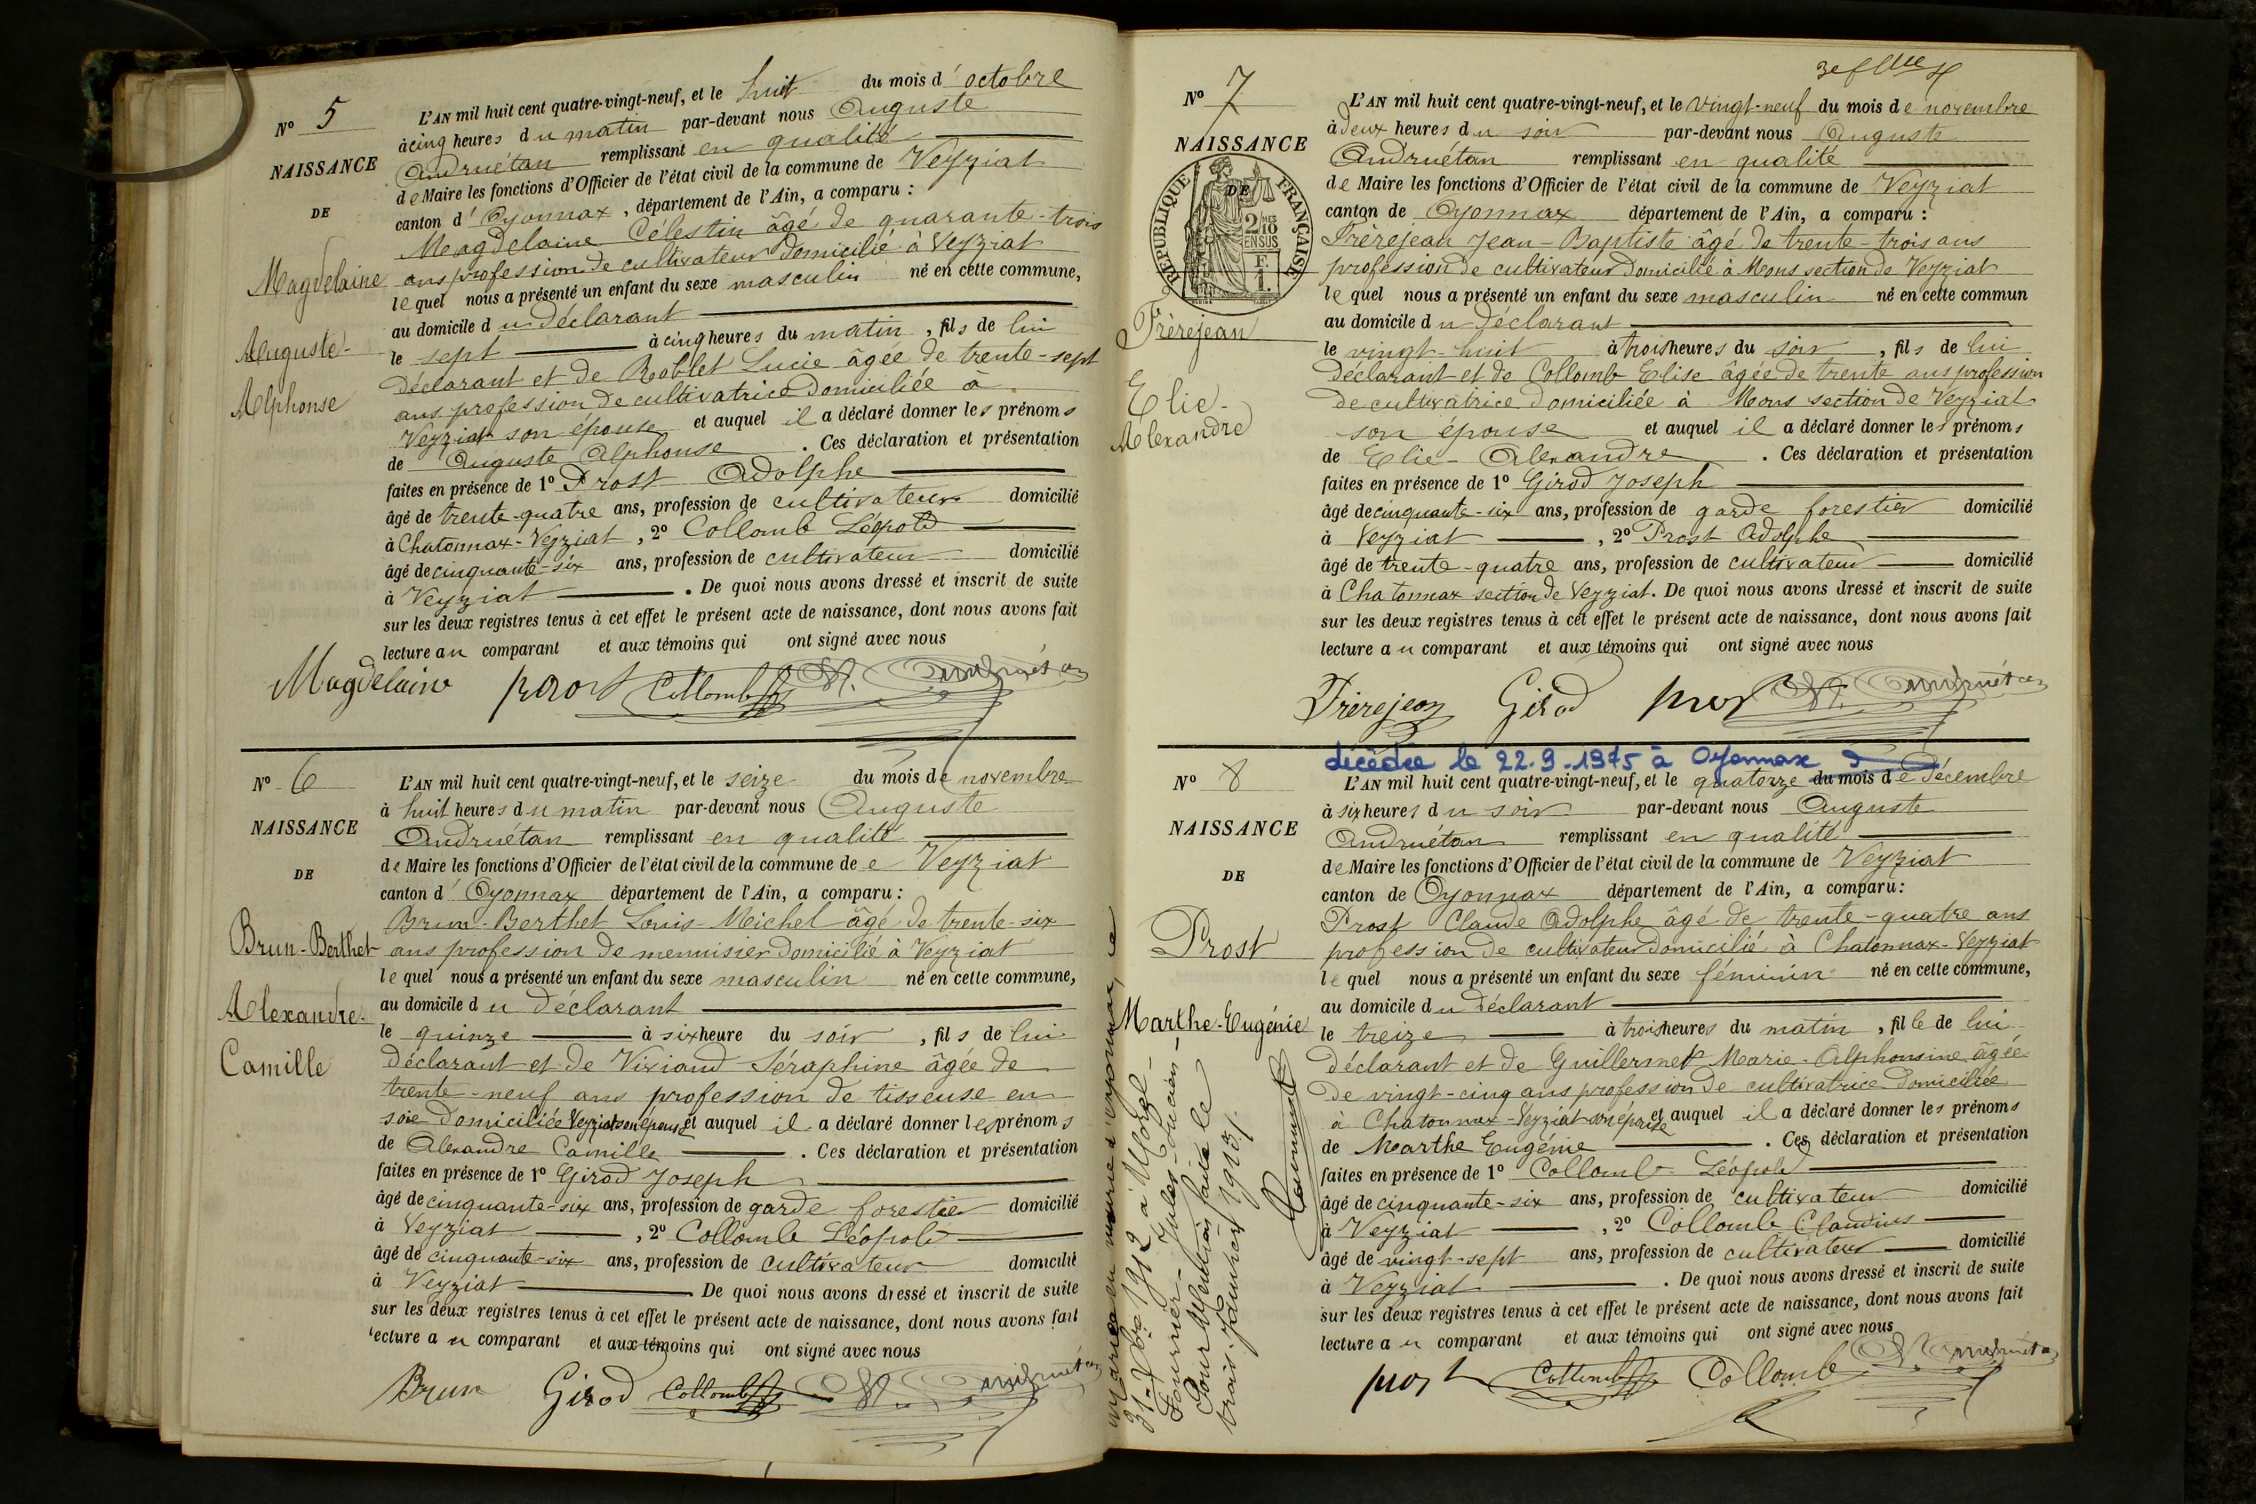 N° 5
NAISSANCE
DE
Magdelaine
Auguste-
Alphonse
L'AN mil huit cent quatre-vingt-neuf, et le huit du mois d'octobre
à cinq heures du matin par-devant nous Auguste
Andruétan remplissant en qualité
de Maire les fonctions d'Officier de l'état civil de la commune de Veyziat
canton d'Oyonnax, département de l'Ain, a comparu :
Magdelaine Célestin âgé de quarante-trois
ans profession de cultivateur domicilié à Veyziat
lequel nous a présenté un enfant du sexe masculin né en cette commune,
au domicile du déclarant
le sept à cinq heures du matin, fils de lui
déclarant et de Roblet Lucie âgée de trente-sept
ans profession de cultivatrice domiciliée à
Veyziat son épouse et auquel il a déclaré donner les prénoms
de Auguste Alphonse. Ces déclaration et présentation
faites en présence de 1° Prost Adolphe
âgé de trente-quatre ans, profession de cultivateur domicilié
à Chatonnax-Veyziat, 2° Collomb Léopold
âgé de cinquante-six ans, profession de cultivateur domicilié
à Veyziat. De quoi nous avons dressé et inscrit de suite
sur les deux registres tenus à cet effet le présent acte de naissance, dont nous avons fait
lecture au comparant et aux témoins qui ont signé avec nous
Magdelaine prost Collomb A. Andruétan
N° 6
NAISSANCE
DE
Brun-Berthet
Alexandre-
Camille
L'AN mil huit cent quatre-vingt-neuf, et le seize du mois de novembre
à huit heures du matin par-devant nous Auguste
Andruétan remplissant en qualité
de Maire les fonctions d'Officier de l'état civil de la commune de e Veyziat
canton d'Oyonnax département de l'Ain, a comparu :
Brun-Berthet Louis-Michel âgé de trente-six
ans profession de menuisier domicilié à Veyziat
lequel nous a présenté un enfant du sexe masculin né en cette commune,
au domicile du déclarant
le quinze à six heure du soir, fils de lui
déclarant et de Viviand Séraphine âgée de
trente-neuf ans profession de tisseuse en
soie domiciliée Veyziat son épouse et auquel il a déclaré donner les prénoms
de Alexandre Camille. Ces déclaration et présentation
faites en présence de 1° Girod Joseph
âgé de cinquante-six ans, profession de garde forestier domicilié
à Veyziat, 2° Collomb Léopold
âgé de cinquante-six ans, profession de cultivateur domicilié
à Veyziat De quoi nous avons dressé et inscrit de suite
sur les deux registres tenus à cet effet le présent acte de naissance, dont nous avons fait
lecture au comparant et aux témoins qui ont signé avec nous
Brun Girod Collomb A. Andruétan
N° 7
NAISSANCE
DE
RÉPUBLIQUE FRANÇAISE
2/10 EN SUS
F.
1.
Frèrejean
Elie-
Alexandre
L'AN mil huit cent quatre-vingt-neuf, et le vingt-neuf du mois de novembre
à deux heures du soir par-devant nous Auguste
Andruétan remplissant en qualité
de Maire les fonctions d'Officier de l'état civil de la commune de Veyziat
canton de Oyonnax département de l'Ain, a comparu :
Frèrejean Jean-Baptiste âgé de trente-trois ans
profession de cultivateur domicilié à Mons section de Veyziat
lequel nous a présenté un enfant du sexe masculin né en cette commun
au domicile du déclarant
le vingt-huit à trois heures du soir, fils de lui
déclarant et de Collomb Elise âgée de trente ans profession
de cultivatrice domiciliée à Mons section de Veyziat
son épouse et auquel il a déclaré donner les prénoms
de Elie-Alexandre. Ces déclaration et présentation
faites en présence de 1° Girod Joseph
âgé de cinquante-six ans, profession de garde forestier domicilié
à Veyziat, 2° Prost Adolphe
âgé de trente-quatre ans, profession de cultivateur domicilié
à Chatonnax section de Veyziat. De quoi nous avons dressé et inscrit de suite
sur les deux registres tenus à cet effet le présent acte de naissance, dont nous avons fait
lecture au comparant et aux témoins qui ont signé avec nous
Frèrejean Girod prost A. Andruétan
décédée le 22.9.1975 à Oyonnax
N° 8
NAISSANCE
DE
Prost
Marthe-Eugénie
L'AN mil huit cent quatre-vingt-neuf, et le quatorze du mois de décembre
à six heures du soir par-devant nous Auguste
Andruétan remplissant en qualité
de Maire les fonctions d'Officier de l'état civil de la commune de Veyziat
canton de Oyonnax département de l'Ain, a comparu :
Prost Claude Adolphe âgé de trente-quatre ans
profession de cultivateur domicilié à Chatonnax-Veyziat
lequel nous a présenté un enfant du sexe féminin né en cette commune,
au domicile du déclarant
le treize à trois heures du matin, fille de lui
déclarant et de Guillermet Marie-Alphonsine âgée
de vingt-cinq ans profession de cultivatrice domiciliée
à Chatonnax-Veyziat son épouse et auquel il a déclaré donner les prénoms
de Marthe Eugénie. Ces déclaration et présentation
faites en présence de 1° Collomb Léopold
âgé de cinquante-six ans, profession de cultivateur domicilié
à Veyziat, 2° Collomb Claudius
âgé de vingt-sept ans, profession de cultivateur domicilié
à Veyziat. De quoi nous avons dressé et inscrit de suite
sur les deux registres tenus à cet effet le présent acte de naissance, dont nous avons fait
lecture au comparant et aux témoins qui ont signé avec nous
prost Collomb Collomb A. Andruétan
Mariée en mairie d'Oyonnax, le
31 1912 à Morel-
Fournier-Jules-Lucien-
Pour Mention faite le
trois Janvier 1913.